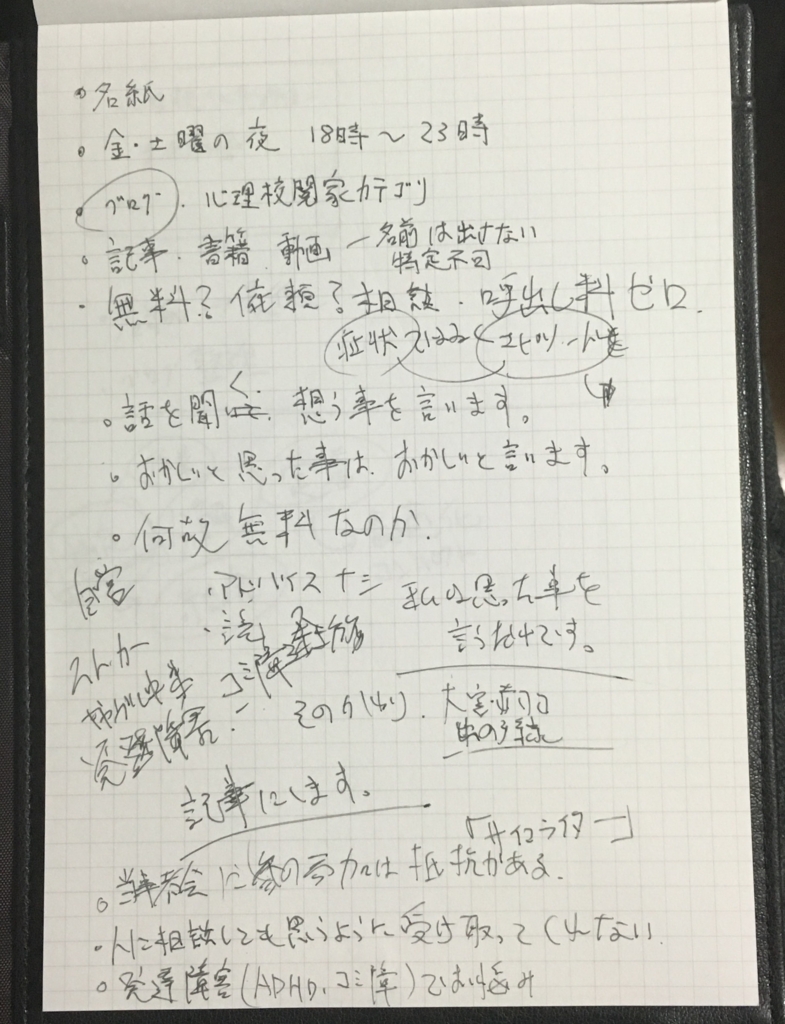 ・名紙
・金・土曜の夜 18時〜23時
・ブログ. 心理校閲家カテゴリ
・記事. 書籍 動画 ー名前は出さない
特定不可
・無料?依頼?相談. 呼出し料ゼロ.
症状ではなくエピソード
・話を聞く. 想う事を言います。
・おかしいと思った事は、おかしいと言います。
・何故無料なのか.
自営
・アドバイスナシ
私は思った事を
言うだけです。
ストーカー
コミ障
発達障害
その代わり.
記事にします。
「サイコライター」
・当事者会に参加は抵抗がある.
・人に相談しても思うように受け取ってくれない
・発達障害(ADHD、コミ障)でお悩み